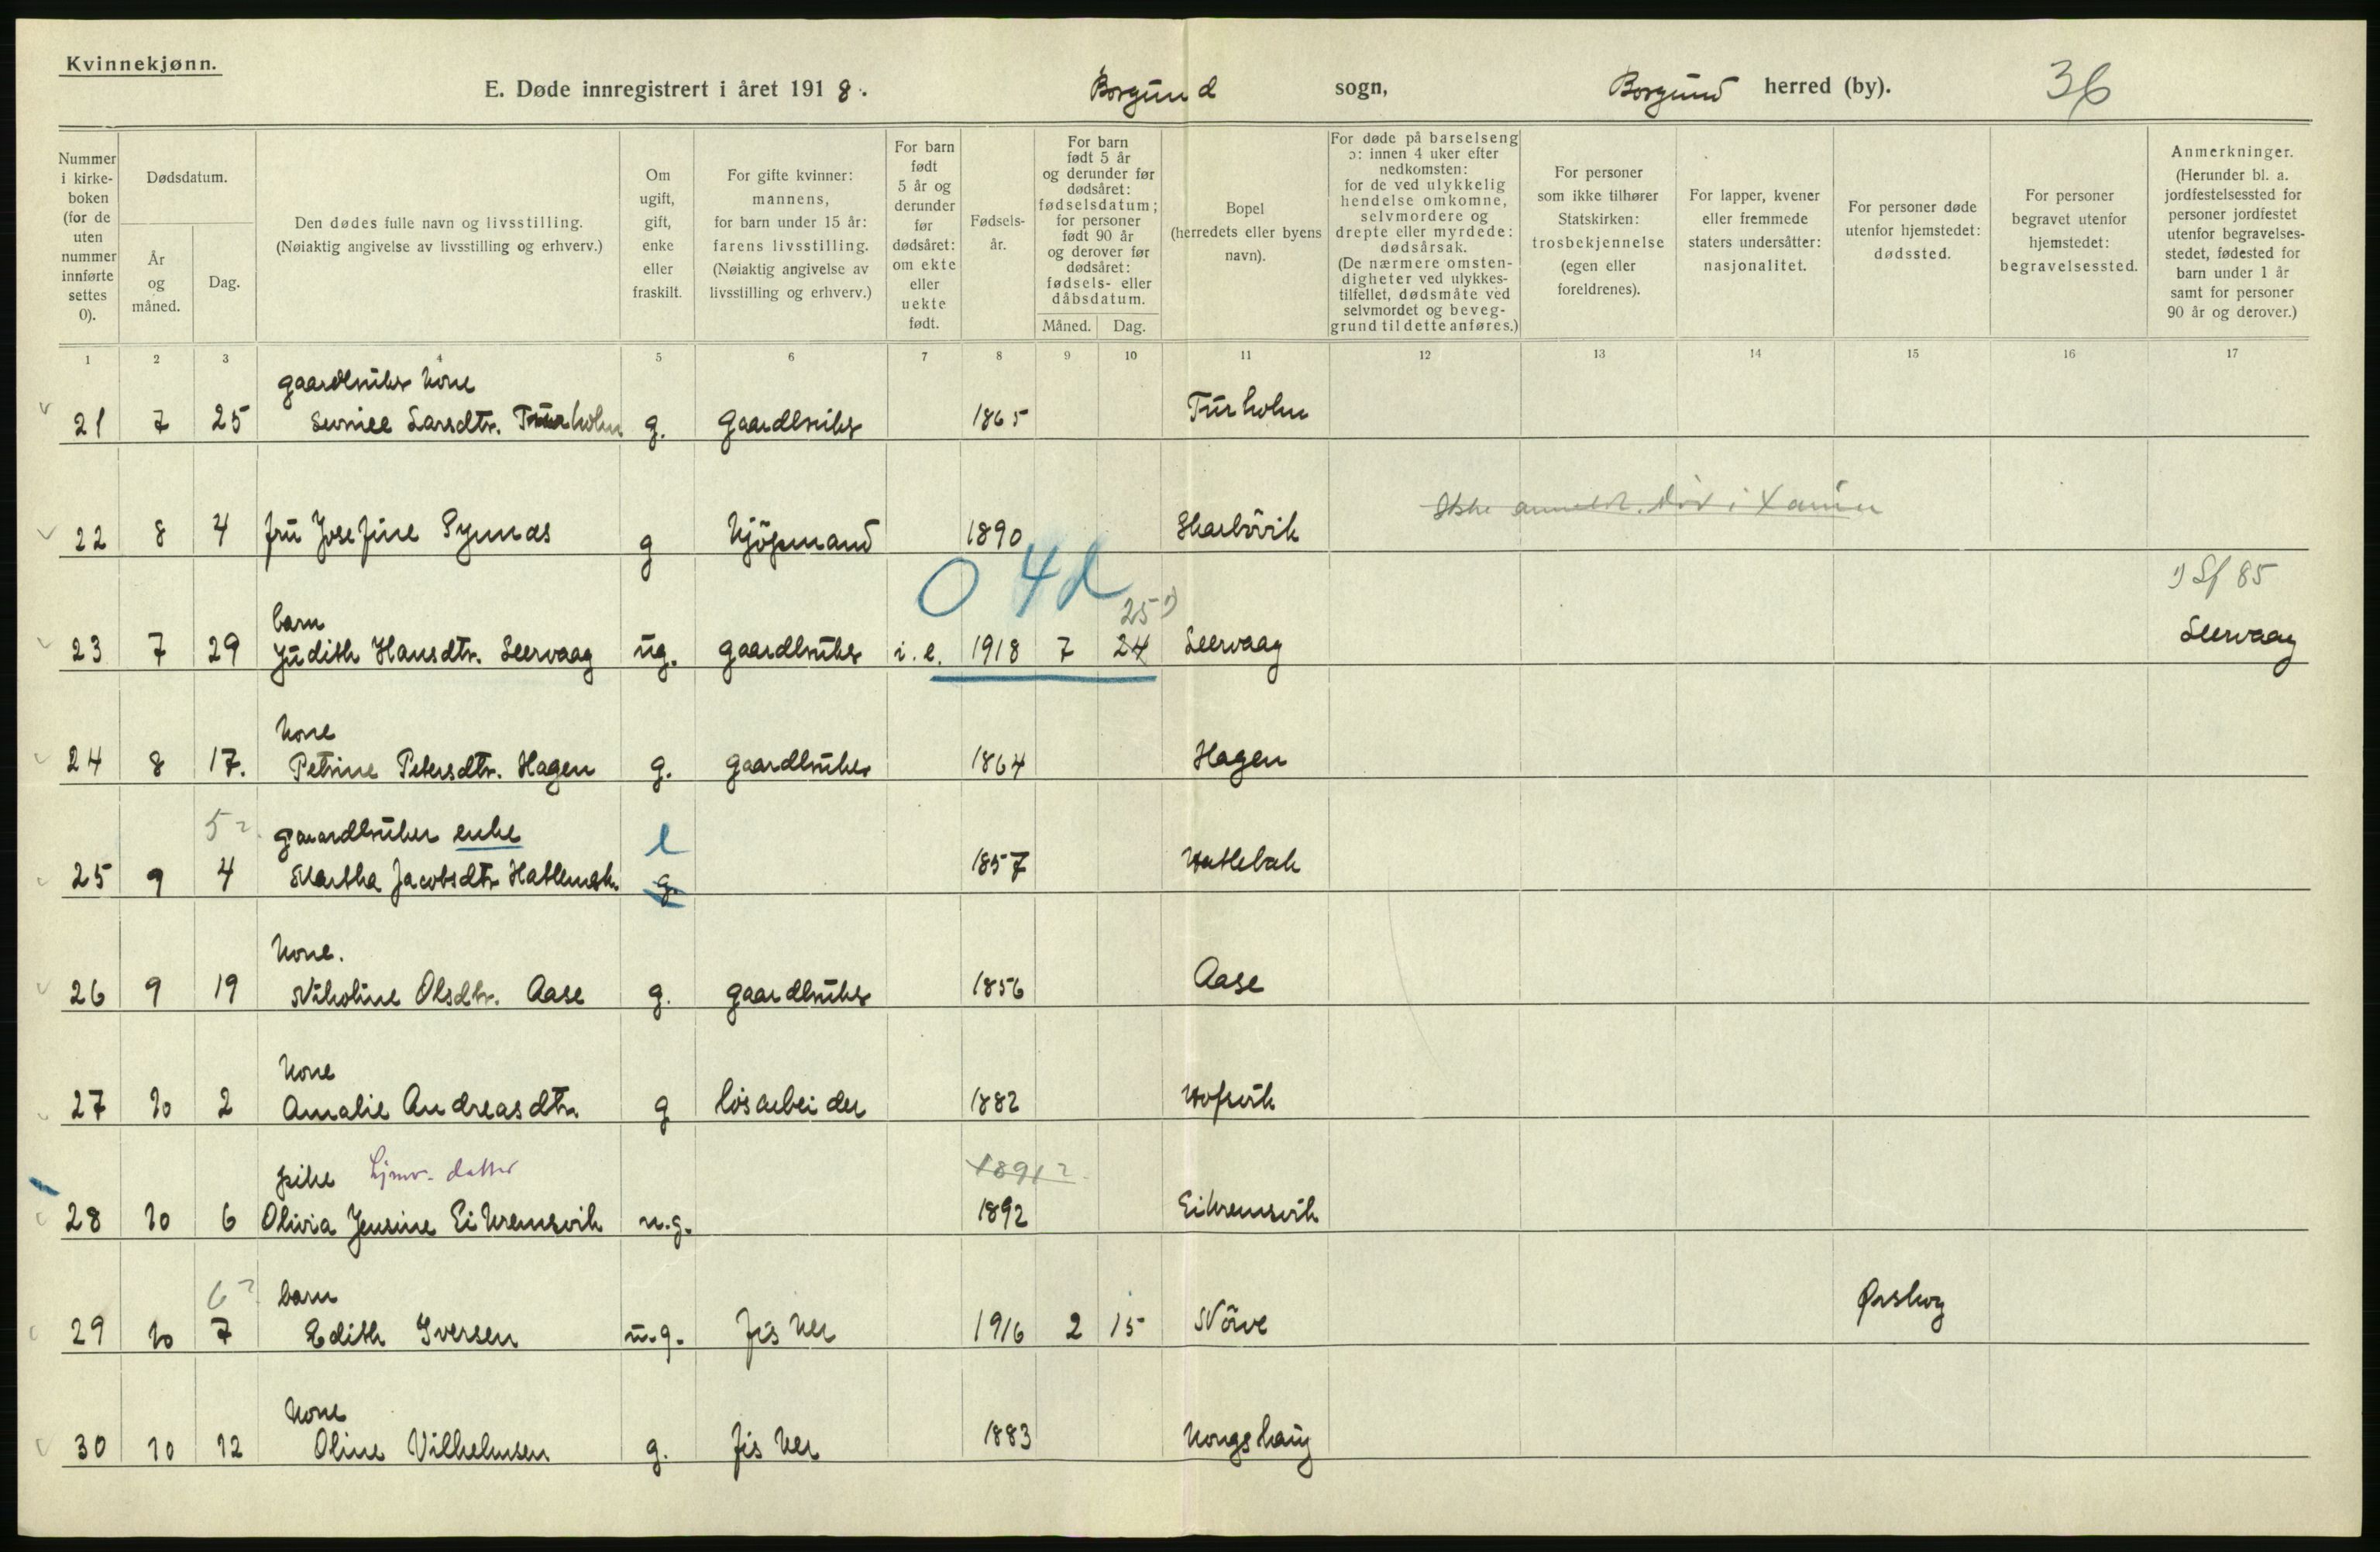 Kvinnekjønn.
E. Døde innregistrert i året 1918. Borgund sogn, Borgund herred (by). 36
Nummer i kirke- boken (for de uten nummer innførte settes 0).
Dødsdatum.
År og måned.
Dag.
Den dødes fulle navn og livsstilling. (Nøiaktig angivelse av livsstilling og erhverv.)
Om ugift, gift, enke eller fraskilt.
For gifte kvinner: mannens, for barn under 15 år: farens livsstilling. (Nøiaktig angivelse av livsstilling og erhverv.)
For barn født 5 år og derunder før dødsåret: om ekte eller uekte født.
Fødsels- år.
For barn født 5 år og derunder før dødsåret: fødselsdatum; for personer født 90 år og derover før dødsåret: fødsels- eller dåbsdatum.
Måned.
Dag.
Bopel (herredets eller byens navn).
For døde på barselseng ɔ: innen 4 uker efter nedkomsten: for de ved ulykkelig hendelse omkomne, selvmordere og drepte eller myrdede: dødsårsak. (De nærmere omsten- digheter ved ulykkes- tilfellet, dødsmåte ved selvmordet og beveg- grund til dette anføres.)
For personer som ikke tilhører Statskirken: trosbekjennelse (egen eller foreldrenes).
For lapper, kvener eller fremmede staters undersåtter: nasjonalitet.
For personer døde utenfor hjemstedet: dødssted.
For personer begravet utenfor hjemstedet: begravelsessted.
Anmerkninger. (Herunder bl. a. jordfestelsessted for personer jordfestet utenfor begravelses- stedet, fødested for barn under 1 år samt for personer 90 år og derover.)
1 2 3 4 5 6 7 8 9 10 11 12 13 14 15 16 17
gaardbruker kone
21 7 25 Larsdtr. Turholm g. gaardbruker 1865 Turholm
22 8 4 fru Josefine Synnes g kjøpmand 1890 Skarbövik
Ikke anmeldt. död i
0 4 d
25 1)
1) Sf 85
barn
23 7 29 Judith Hansdtr. Leervaag ug. gaardbruker i.e. 1918 7 24 Leervaag Leervaag
kone
24 8 17. Petrine Petersdtr. Hagen g. gaardbruker 1864 Hagen
5?
gaardbruker enke e
25 9 4 Martha Jacobsdtr. g. 1857
kone.
26 9 19 Nikoline Olsdtr. Aase g. gaardbruker 1856 Aase
kone
27 10 2 Amalie Andreasdtr. g løsarbeider 1882
pike hjmv. datter 1891?
28 10 6 Olivia Jensine Eikremsvik u.g. 1892 Eikremsvik
6? barn
29 10 7 Edith Iversen u.g. fisker 1916 2 15 Nörve Ørskog
kone
30 10 12 Oline Vilhelmsen g. fisker 1883 Kongshaug